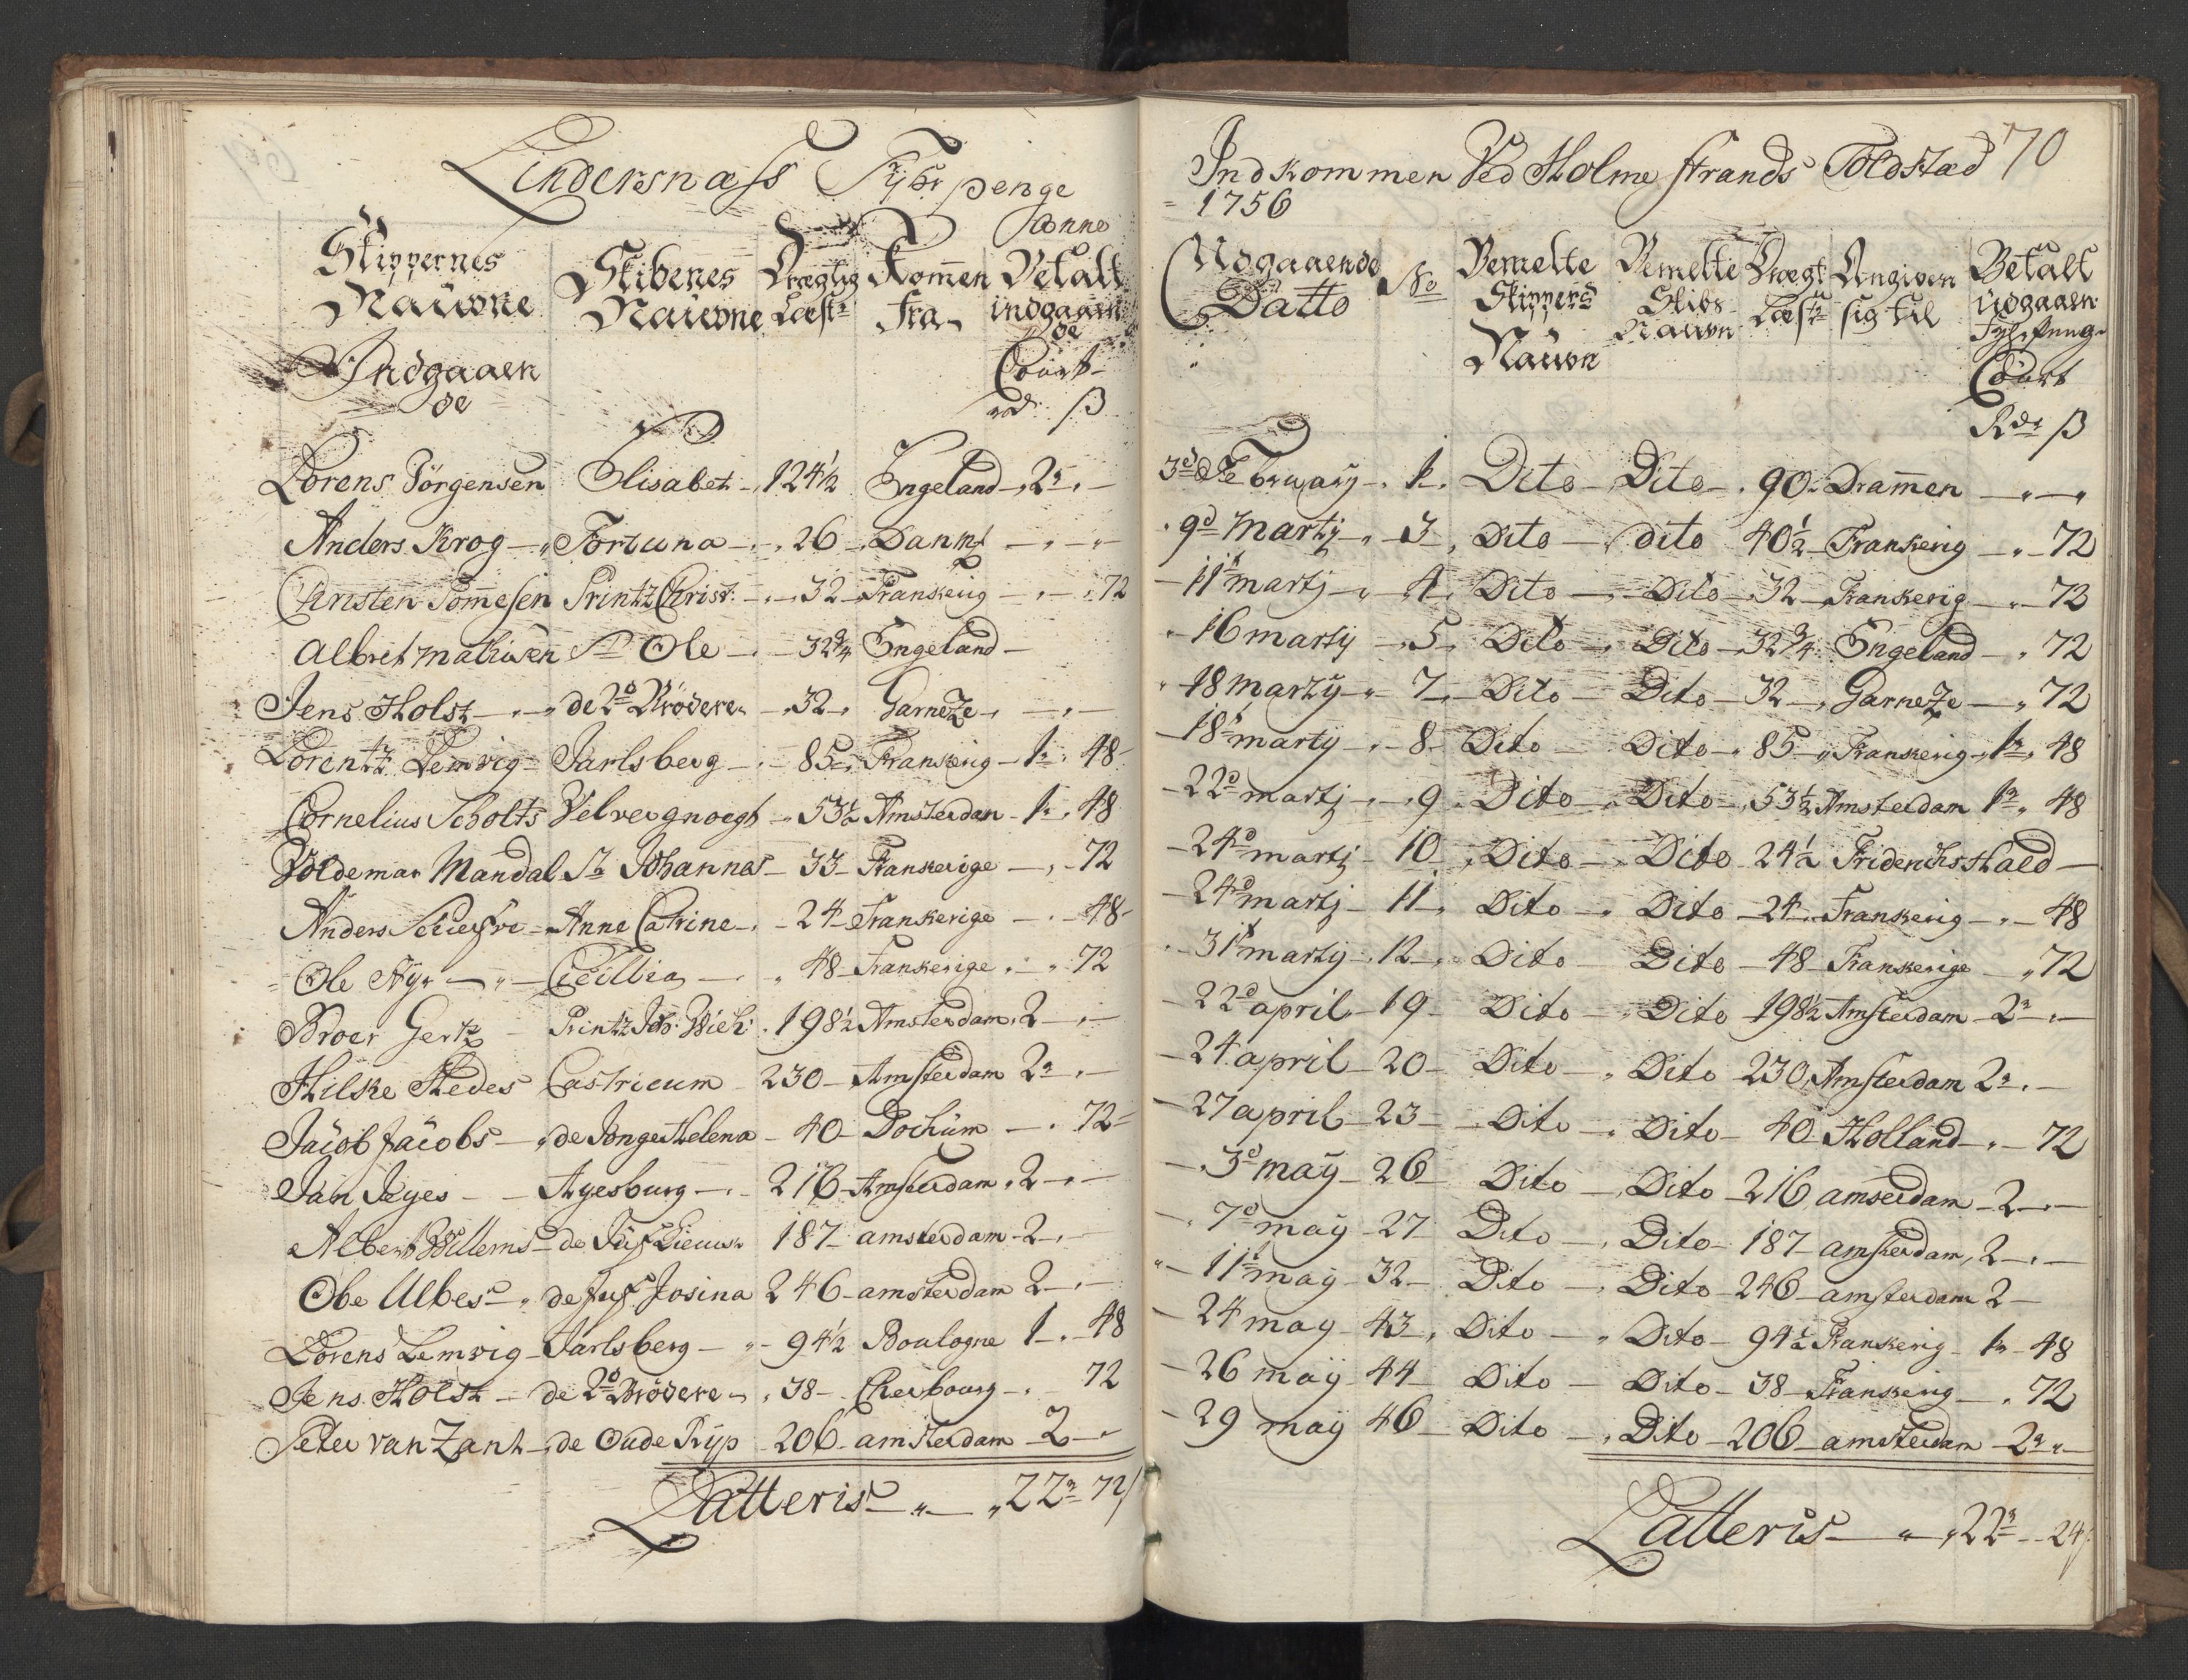 Lindersnæss Fyhr penge
Anno
Skippernes Nauvne
Skibenes Nauvne
Drægtig Læstr
Kommen Fra
Betalt indgaaende
Indgaaende
Court
rd ß
Lorens Jörgensen Elisabet 124½ Engeland 2
Anders Krog Fortuna 26 Danmk
Christen Tomesen Printz Christ: 32 Frankerig 72
Albret Ole 32¾ Engeland
Jens Holst de 2de Brödere 32 Garneze
Lorentz Lemvig Jarlsberg 85 Frankerig 1 48
Cornelius Scholts Velvergnoegt 53½ Amsterdam 1 48
Voldemar Mandal St Johannes 33 Frankerige 72
Anders Anne Catrine 24 Frankerige 48
Ole Cicillia 48 Frankerige 72
Broer Gertz Printz 198½ Amsterdam 2
Hilke Hedes Castricum 230 Amsterdam 2
Jacob Jacobs de Jonge Helena 40 Dochum 72
Jan Jeyes Ayesburg 216 Amsterdam 2
Albert Willems de Juf 187 amsterdam 2
Obe Ulbes de Juf Josina 246 amsterdam 2
Lorens Lemvig Jarlsberg 94½ Boulogne 1 48
Jens Holst de 2de Brödere 38 Cherbourg 72
Peter van Zant de Oude Ryp 206 amsterdam 2
Latteris 22 72
Indkommen Ved Holmestrands Toldstæd 70
1756
Udgaaende Datto
No
Bemelte Skippers Nauvn
Bemelte Skibs Nauvn
Drægt Læstr
Angiven sig til
Betalt udgaaen Fyhr Penge
Court
Rdr ß
3de February 1 Dito Dito 90 Drammen
9d Martij 3 Dito dito 40½ Frankerig 72
11t martj 4 Dito Dito 32 Frankerig 72
16 martij 5 Dito Dito 32¾ Engeland 72
18 martij 7 Dito Dito 32 Garneze 72
18t martij 8 Dito Dito 85 Frankerig 1 48
22d martj 9 Dito Dito 53½ Amsterdam 1 48
24d martj 10 Dito Dito 24½ Friderichshald
24d martj 11 Dito Dito 24 Frankerig 48
31t martij 12 Dito Dito 48 Frankerige 72
22d april 19 Dito Dito 198½ Amsterdam 2
24 april 20 Dito Dito 230 Amsterdam 2
27 april 23 Dito Dito 40 Holland 72
3d maÿ 26 Dito Dito 216 amserdam 2
7d maÿ 27 Dito Dito 187 amsterdam 2
11t maÿ 32 Dito Dito 246 amsterdam 2
24 may 43 Dito Dito 94½ Frankerig 1 48
26 maÿ 44 Dito Dito 38 Frankerig 72
29 maÿ 46 Dito Dito 206 amsterdam 2
Latteris 22 24